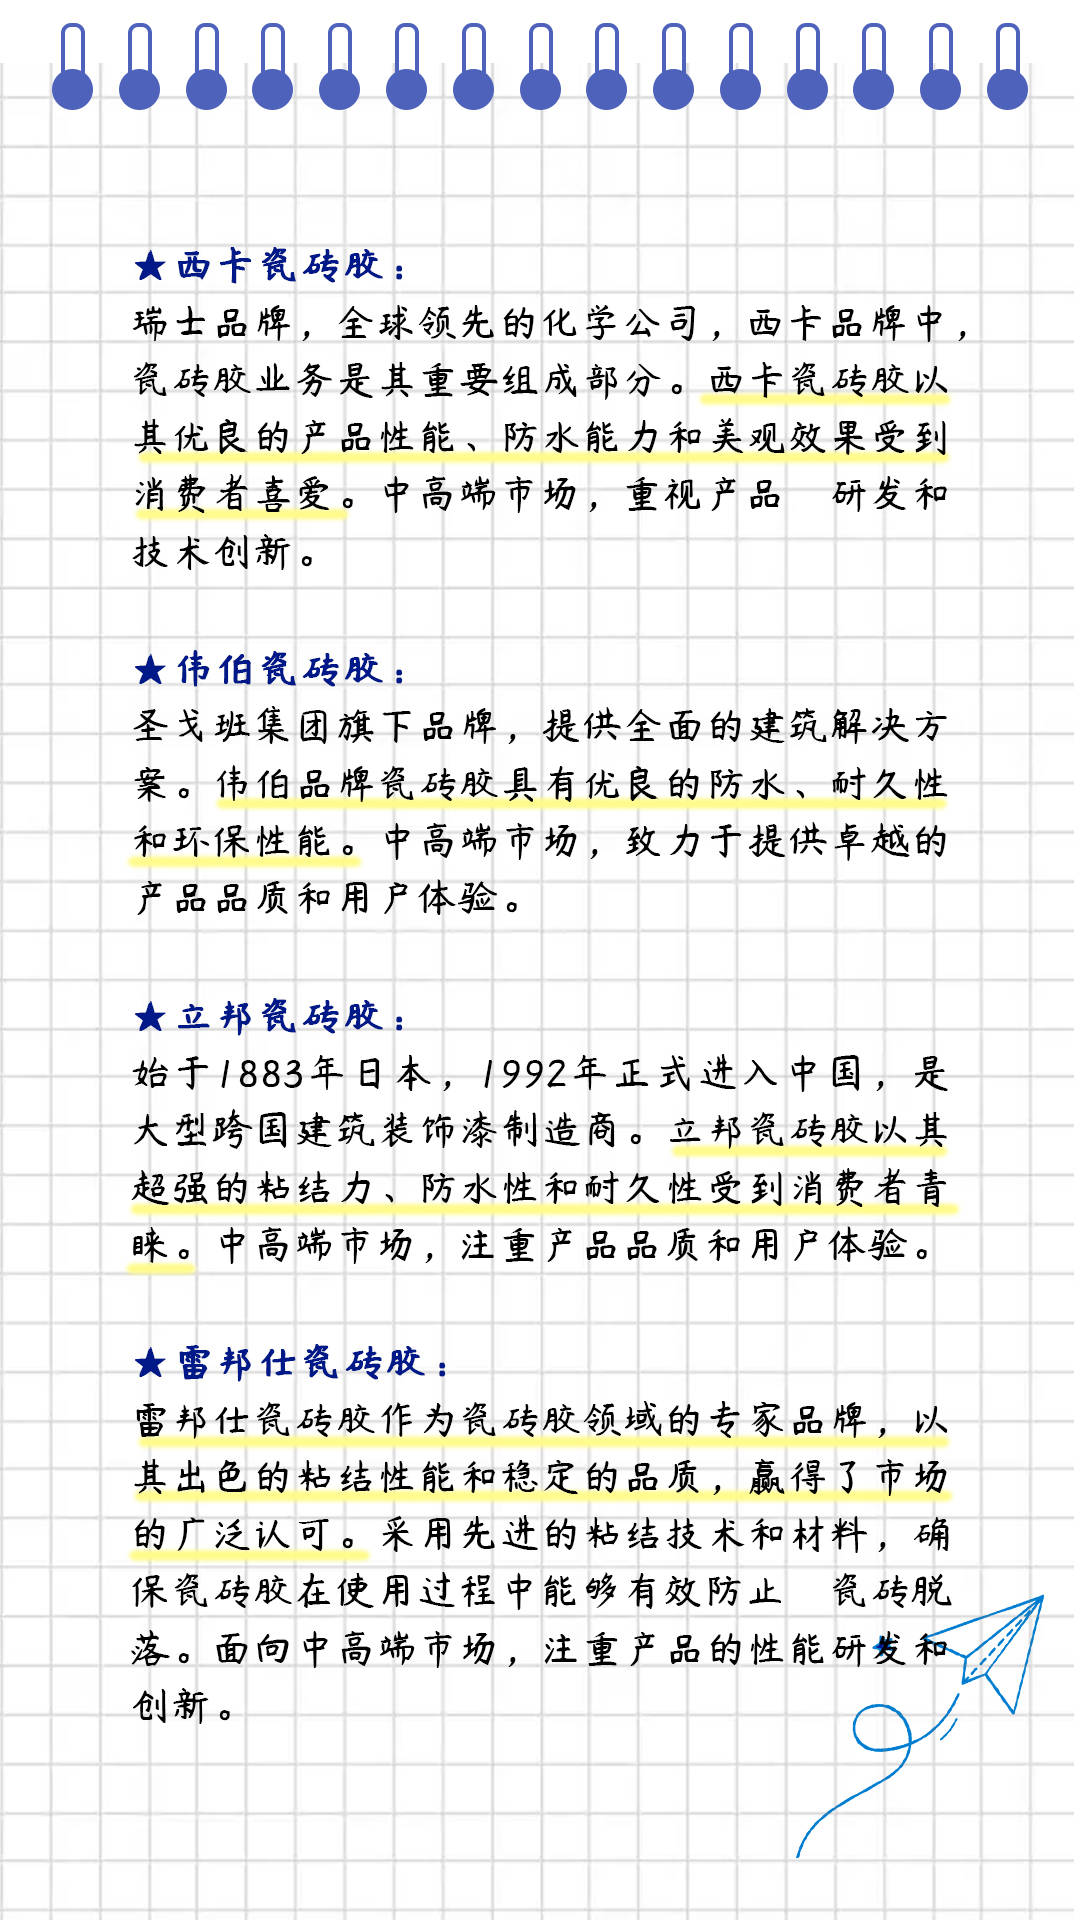 ★西卡瓷砖胶：
瑞士品牌，全球领先的化学公司，西卡品牌中，
瓷砖胶业务是其重要组成部分。西卡瓷砖胶以
其优良的产品性能、防水能力和美观效果受到
消费者喜爱。中高端市场，重视产品　研发和
技术创新。
★伟伯瓷砖胶：
圣戈班集团旗下品牌，提供全面的建筑解决方
案。伟伯品牌瓷砖胶具有优良的防水、耐久性
和环保性能。中高端市场，致力于提供卓越的
产品品质和用户体验。
★立邦瓷砖胶：
始于1883年日本，1992年正式进入中国，是
大型跨国建筑装饰漆制造商。立邦瓷砖胶以其
超强的粘结力、防水性和耐久性受到消费者青
睐。中高端市场，注重产品品质和用户体验。
★雷邦仕瓷砖胶：
雷邦仕瓷砖胶作为瓷砖胶领域的专家品牌，以
其出色的粘结性能和稳定的品质，赢得了市场
的广泛认可。采用先进的粘结技术和材料，确
保瓷砖胶在使用过程中能够有效防止　瓷砖脱
落。面向中高端市场，注重产品的性能研发和
创新。